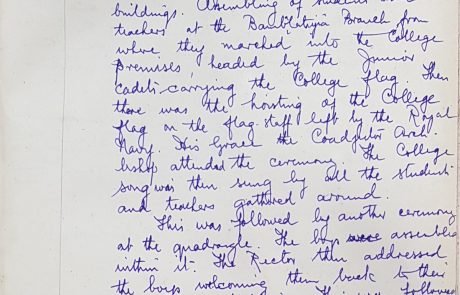 buildings. Assembling of students and
teachers at the Bambalapitiya Branch from
where they marched into the College
premises, headed by the Junior
cadets carrying the College flag. Then
there was the hoisting of the College
flag on the flag-staff left by the Royal
Navy. His Grace the Coadjutor Arch-
bishop attended the ceremony. The College
song was then sung by all the students
and teachers gathered around.
This was followed by another ceremony
at the quadrangle. The boys were assembled
within it. The Rector then addressed
the boys welcoming them back to their
followed